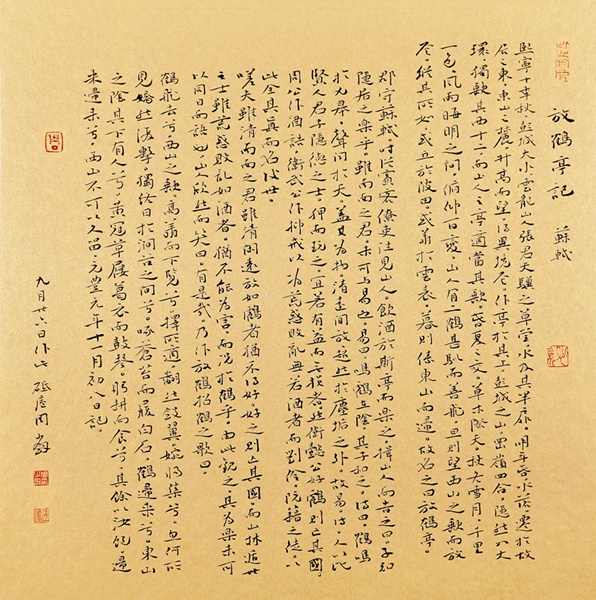 放鶴亭記 蘇軾
熙寧十年秋。彭城大水。雲龍山人張君天驥之草堂。水及其半扉。明年春。水落。遷於故
居之東。東山之麓。升高而望。得異境焉。作亭於其上。彭城之山。岡嶺四合。隱然如大
環。獨缺其西十二。而山人之亭。適當其缺。春夏之交。草木際天。秋冬雪月。千里
一色。風雨晦明之間。俯仰百變。山人有二鶴。甚馴而善飛。旦則望西山之缺而放
焉。縱其所如。或立於陂田。或翔於雲表。暮則傃東山而歸。故名之曰放鶴亭。
郡守蘇軾。時從賓客僚吏往見山人。飲酒於斯亭而樂之。揖山人而告之曰。子知
隱居之樂乎。雖南面之君。未可與易也。易曰。鳴鶴在陰。其子和之。詩曰。鶴鳴
於九皋。聲聞於天。蓋其為物。清遠閒放。超然於塵垢之外。故易。詩。人以比
賢人君子隱德之士。狎而玩之。宜若有益而無損者。然衛懿公好鶴則亡其國
周公作酒誥。衛武公作抑戒。以為荒惑敗亂。無若酒者。而劉伶。阮籍之徒。以
此全其真而名後世。
嗟夫。雖南面之君。雖清閒遠放如鶴者。猶不得好。好之則亡其國。而山林遁世
之士。雖荒惑敗亂如酒者。猶不能為害。而況於鶴乎。由此觀之。其為樂未可
以同日而語也。山人欣然而笑曰。有是哉。乃作放鶴招鶴之歌曰。
鶴飛去兮。西山之缺。高翔而下覽兮。擇所適。翻然斂翼。婉將集兮。忽何所
見。矯然復擊。獨終日於澗谷之間兮。啄蒼苔而履白石。鶴歸來兮。東山
之陰。其下有人兮。黃冠草屨。葛衣而鼓琴。躬耕而食兮。其餘以汝飽。歸
來歸來兮。西山不可以久留。元豐元年十一月初八日記。
九月廿八日作